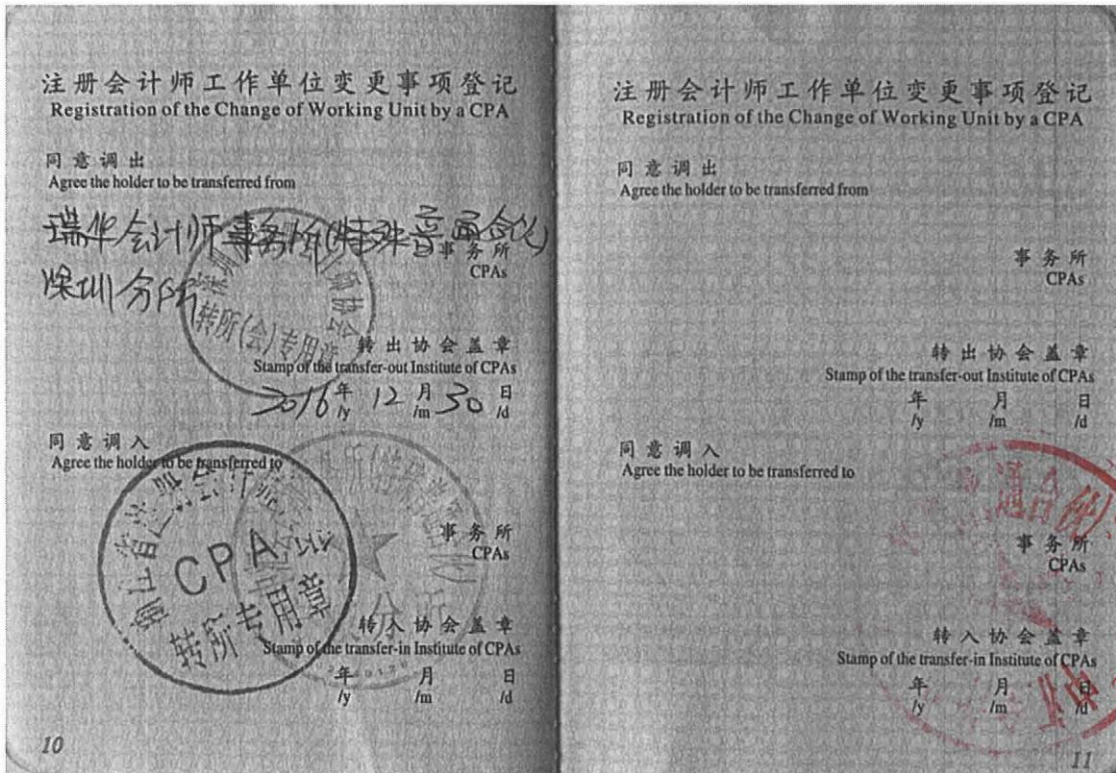 注册会计师工作单位变更事项登记
Registration of the Change of Working Unit by a CPA
同意调出
Agree the holder to be transferred from
瑞华会计师事务所(特殊普通合伙)
事务所
CPAs
深圳分所
转所(会)专用章
转出协会盖章
Stamp of the transfer-out Institute of CPAs
2016年 12月 30日
/y /m /d
同意调入
Agree the holder to be transferred to
事务所
CPAs
CPA
转所专用章
分所
转入协会盖章
Stamp of the transfer-in Institute of CPAs
年 月 日
/y /m /d
10
注册会计师工作单位变更事项登记
Registration of the Change of Working Unit by a CPA
同意调出
Agree the holder to be transferred from
事务所
CPAs
转出协会盖章
Stamp of the transfer-out Institute of CPAs
年 月 日
/y /m /d
同意调入
Agree the holder to be transferred to
通合伙)
事务所
CPAs
转入协会盖章
Stamp of the transfer-in Institute of CPAs
年 月 日
/y /m /d
11